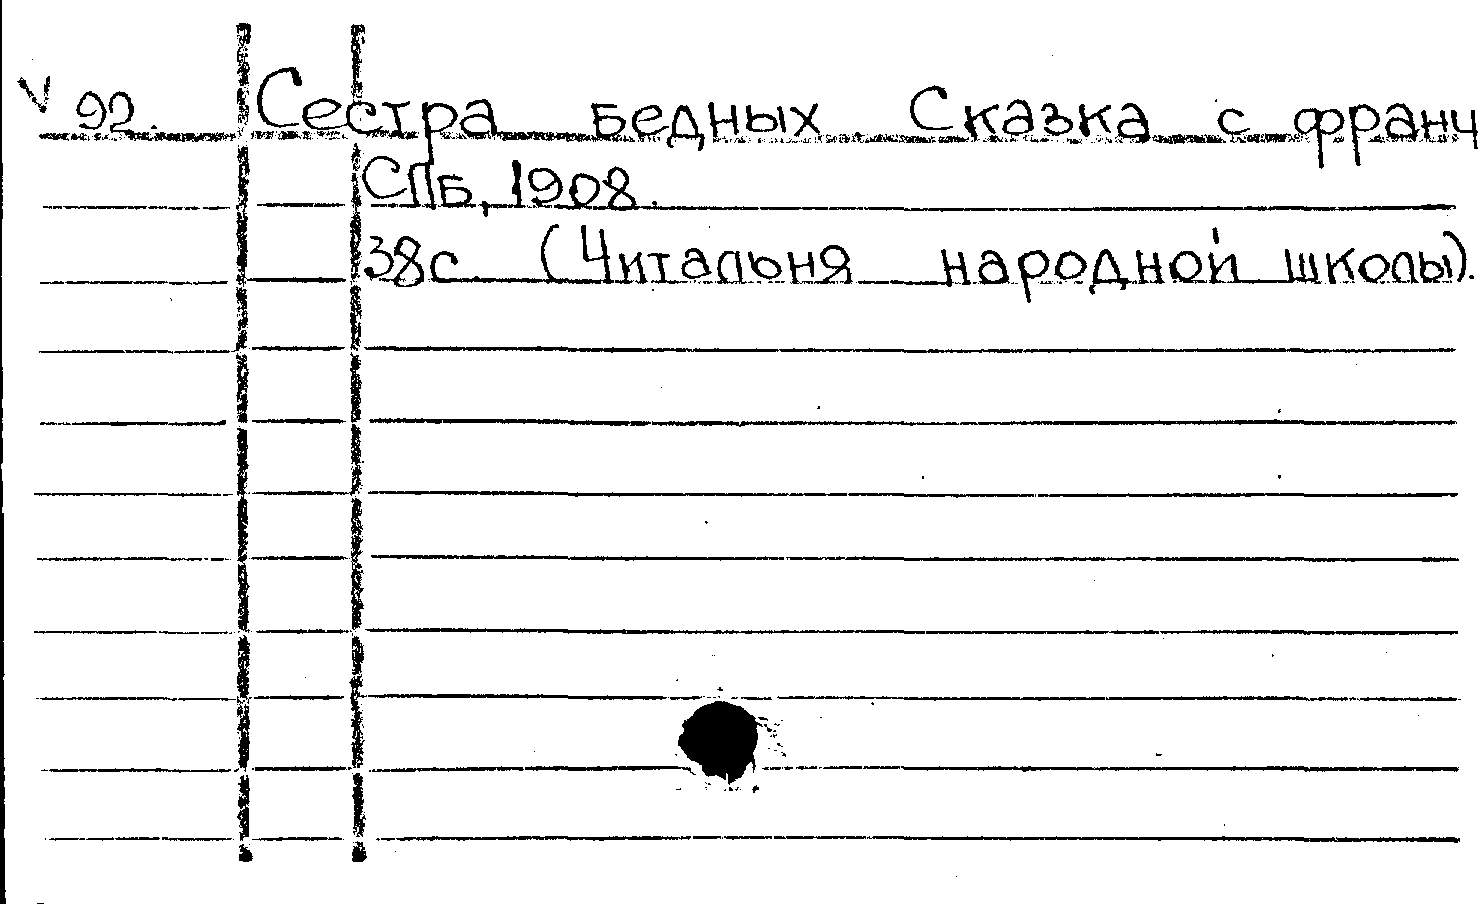 V 92. Сестра бедных. Сказка с франц
СПБ, 1908.
38с. (Читальня народной школы).